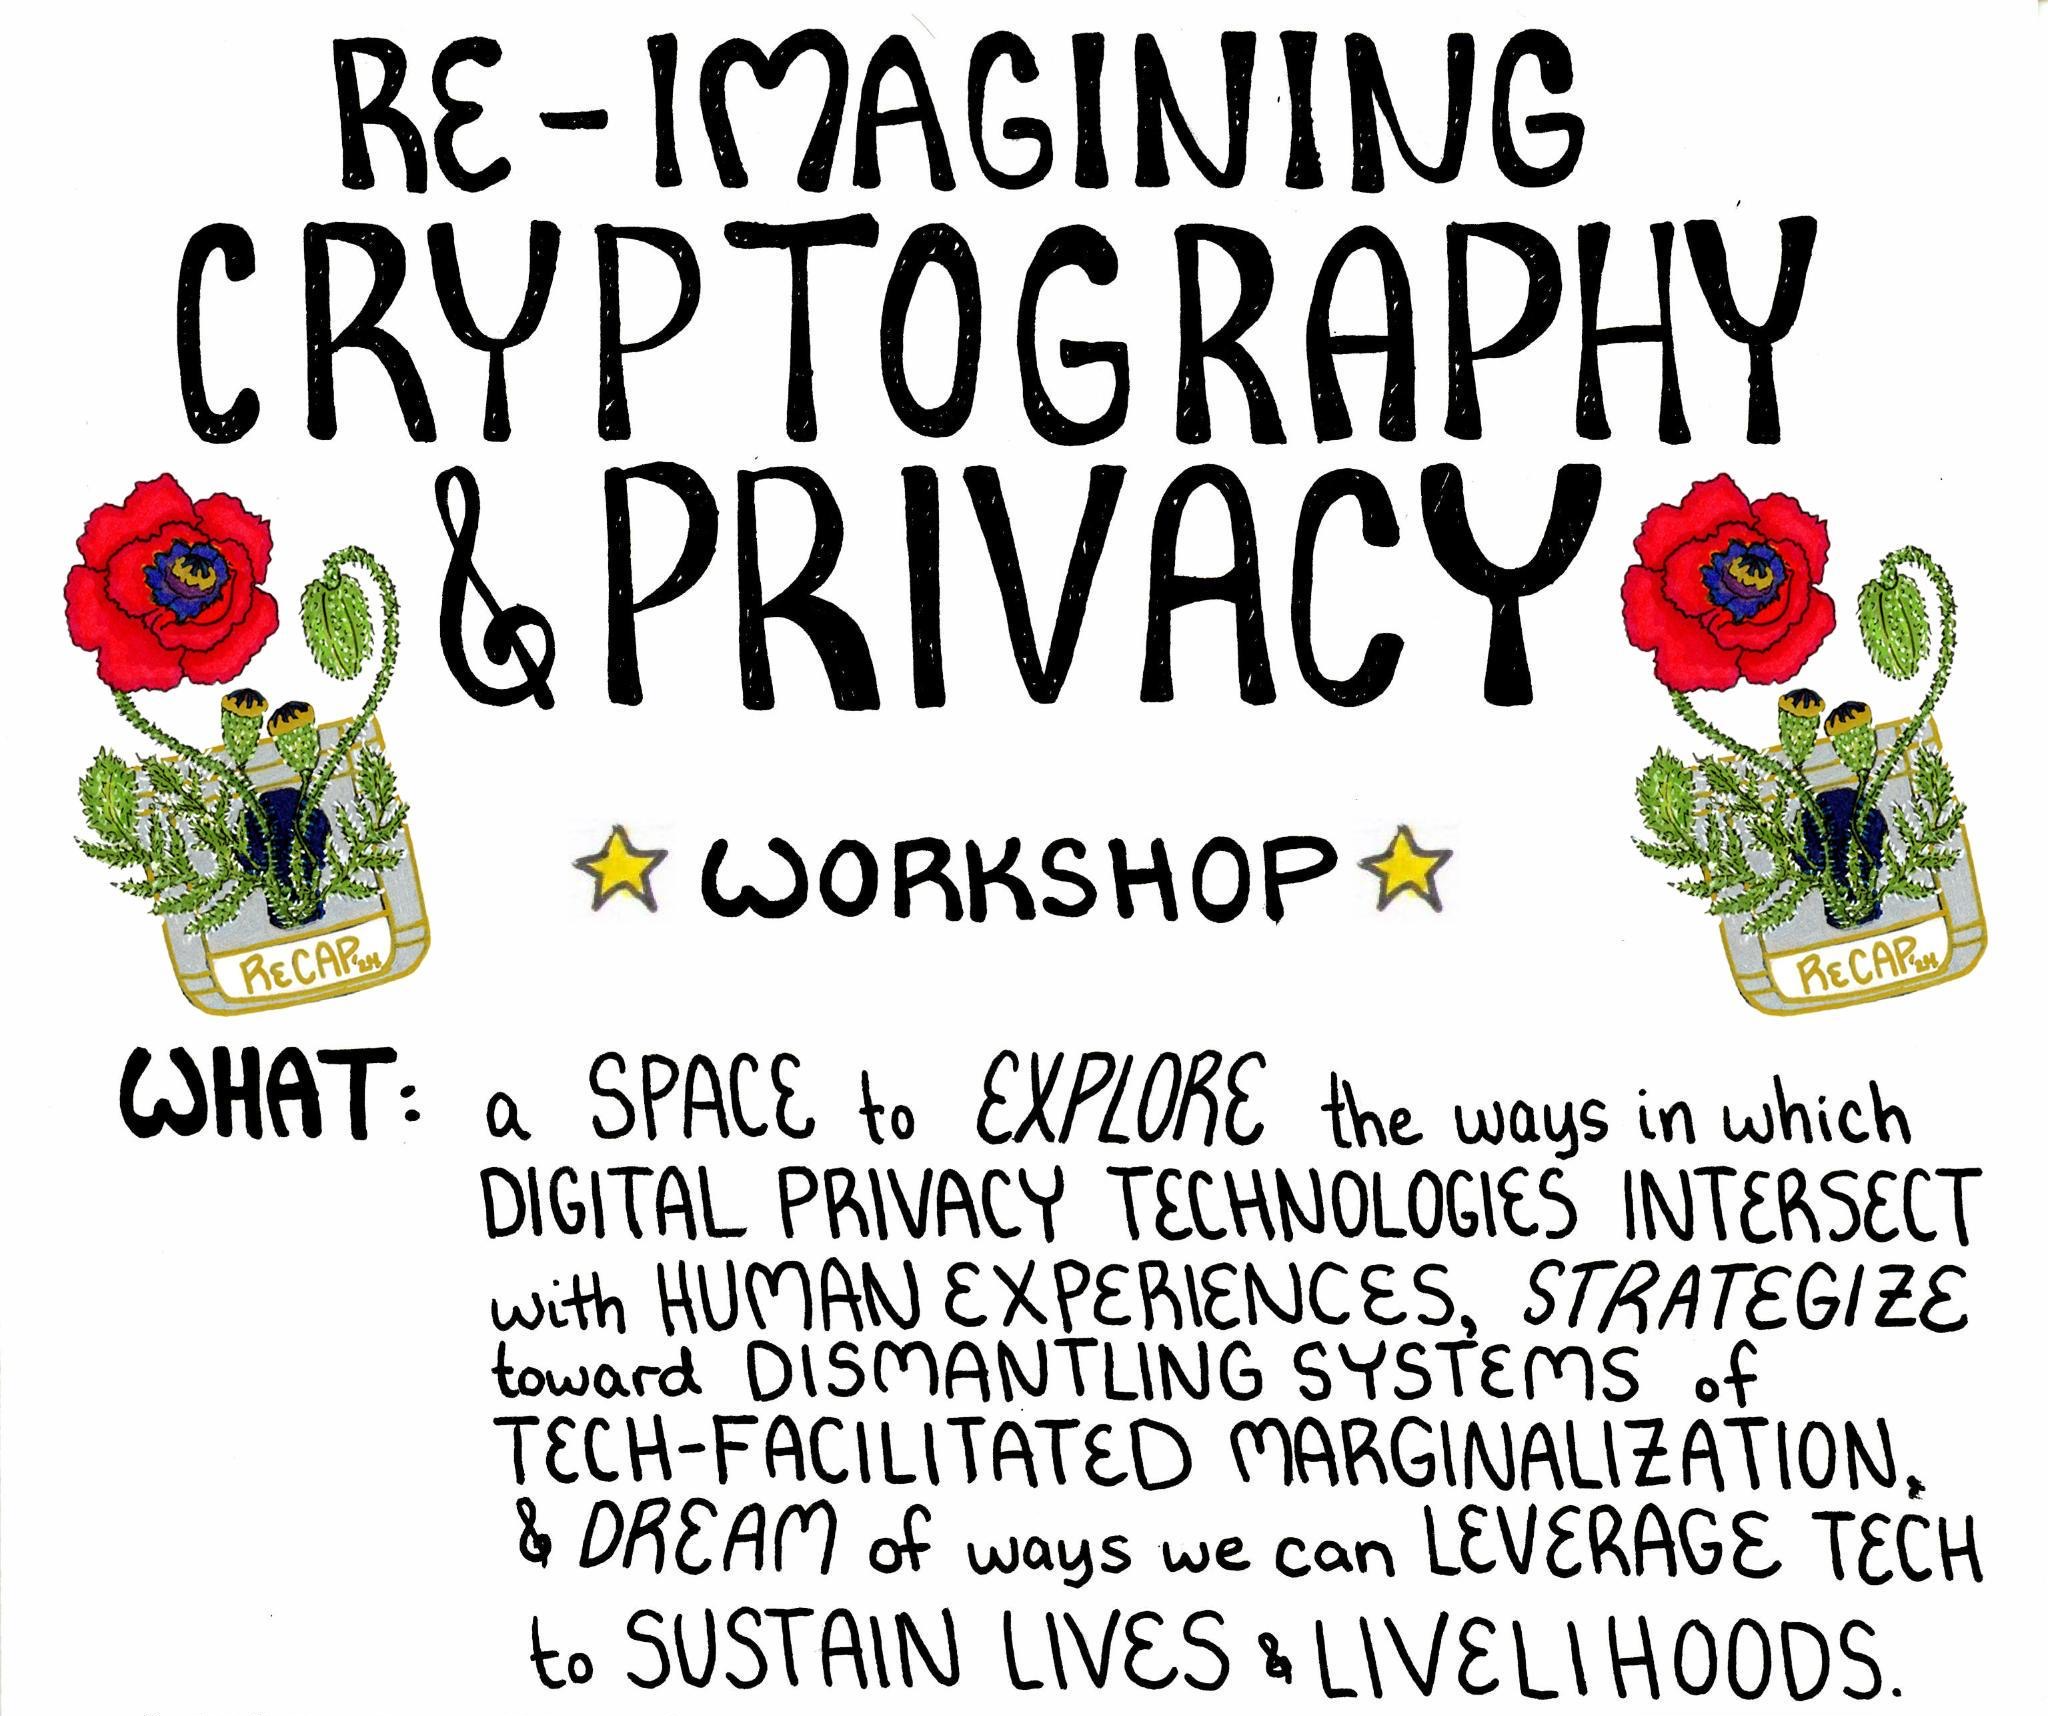 RE-IMAGINING
CRYPTOGRAPHY
& PRIVACY
WORKSHOP
ReCAP '24
ReCAP '24
WHAT: a SPACE to EXPLORE the ways in which
DIGITAL PRIVACY TECHNOLOGIES INTERSECT
with HUMAN EXPERIENCES, STRATEGIZE
toward DISMANTLING SYSTEMS of
TECH-FACILITATED MARGINALIZATION,
& DREAM of ways we can LEVERAGE TECH
to SUSTAIN LIVES & LIVELIHOODS.